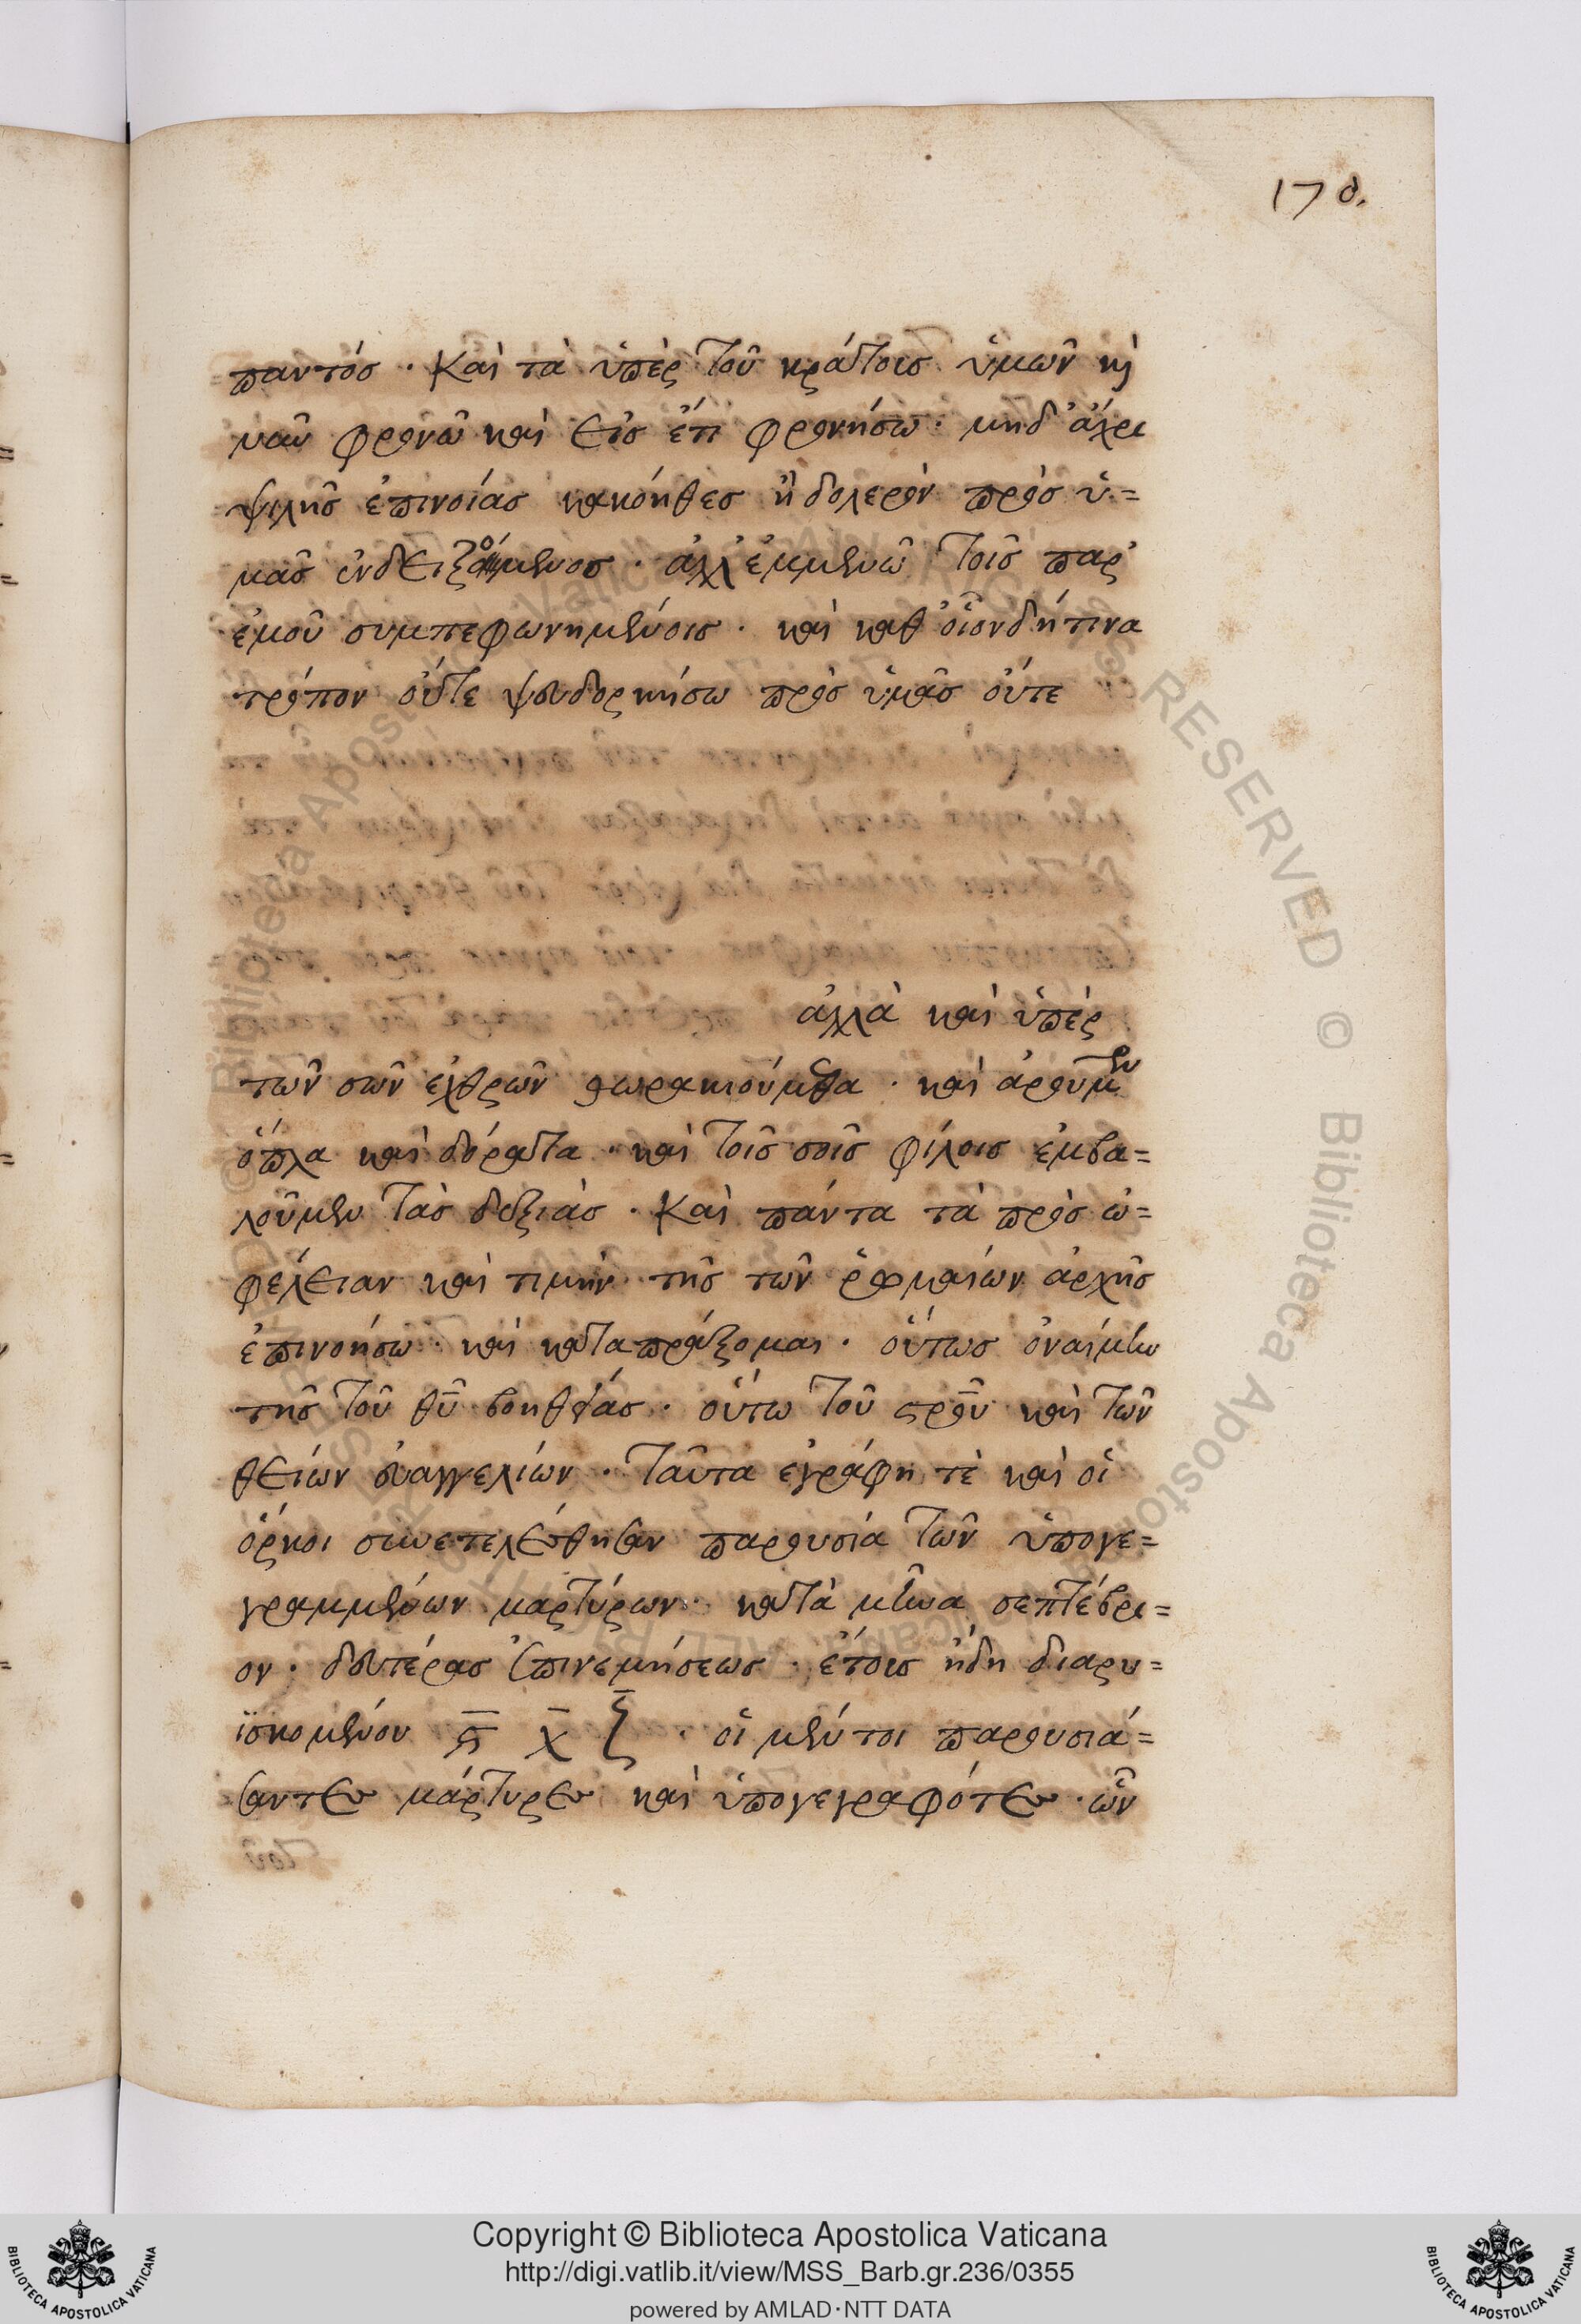 178.
παντός · Καὶ τὰ ὑπὲρ τοῦ κράτους ὑμῶν καὶ
νῦν φρονῶ καὶ εἰς ἔτι φρονήσω · μηδ' ἄχρι
ψιλῆς ἐπινοίας κακόηθες ἢ δολερὸν πρὸς ὑ=
μᾶς ἐνδειξόμενος · ἀλλ' ἐμμενῶ τοῖς παρ'
ἐμοῦ συμπεφωνημένοις · καὶ καθ' οἱονδήτινα
τρόπον οὔτε ψευδορκήσω πρὸς ὑμᾶς οὔτε
ἀλλὰ καὶ ὑπὲρ
τῶν σῶν ἐχθρῶν θωρακιούμεθα · καὶ ἀροῦμεν
ὅπλα καὶ δόρατα · καὶ τοῖς σοῖς φίλοις ἐμβα=
λοῦμεν τὰς δεξιὰς · Καὶ πάντα τὰ πρὸς ὠ=
φέλειαν καὶ τιμὴν τῆς τῶν ῥωμαίων ἀρχῆς
ἐπινοήσω · καὶ καταπράξομαι · οὕτως ὀναίμην
τῆς τοῦ θῦ βοηθείας · οὕτω τοῦ σροῦ καὶ τῶν
θείων εὐαγγελίων · Ταῦτα ἐγράφη τὲ καὶ οἱ
ὅρκοι συνετελέσθησαν παρουσία τῶν ὑπογε=
γραμμένων μαρτύρων · κατὰ μῆνα σεπτέβρι=
ον · δευτέρας ἐπινεμήσεως · ἔτους ἤδη διαρυ=
ϊσκομένου ς̅ χ̅ ξ̅ · οἱ μέντοι παρουσιά=
σαντες μάρτυρες καὶ ὑπογεγραφότες · ὧν
Copyright © Biblioteca Apostolica Vaticana
http://digi.vatlib.it/view/MSS_Barb.gr.236/0355
powered by AMLAD·NTT DATA
BIBLIOTECA APOSTOLICA VATICANA
BIBLIOTECA APOSTOLICA VATICANA